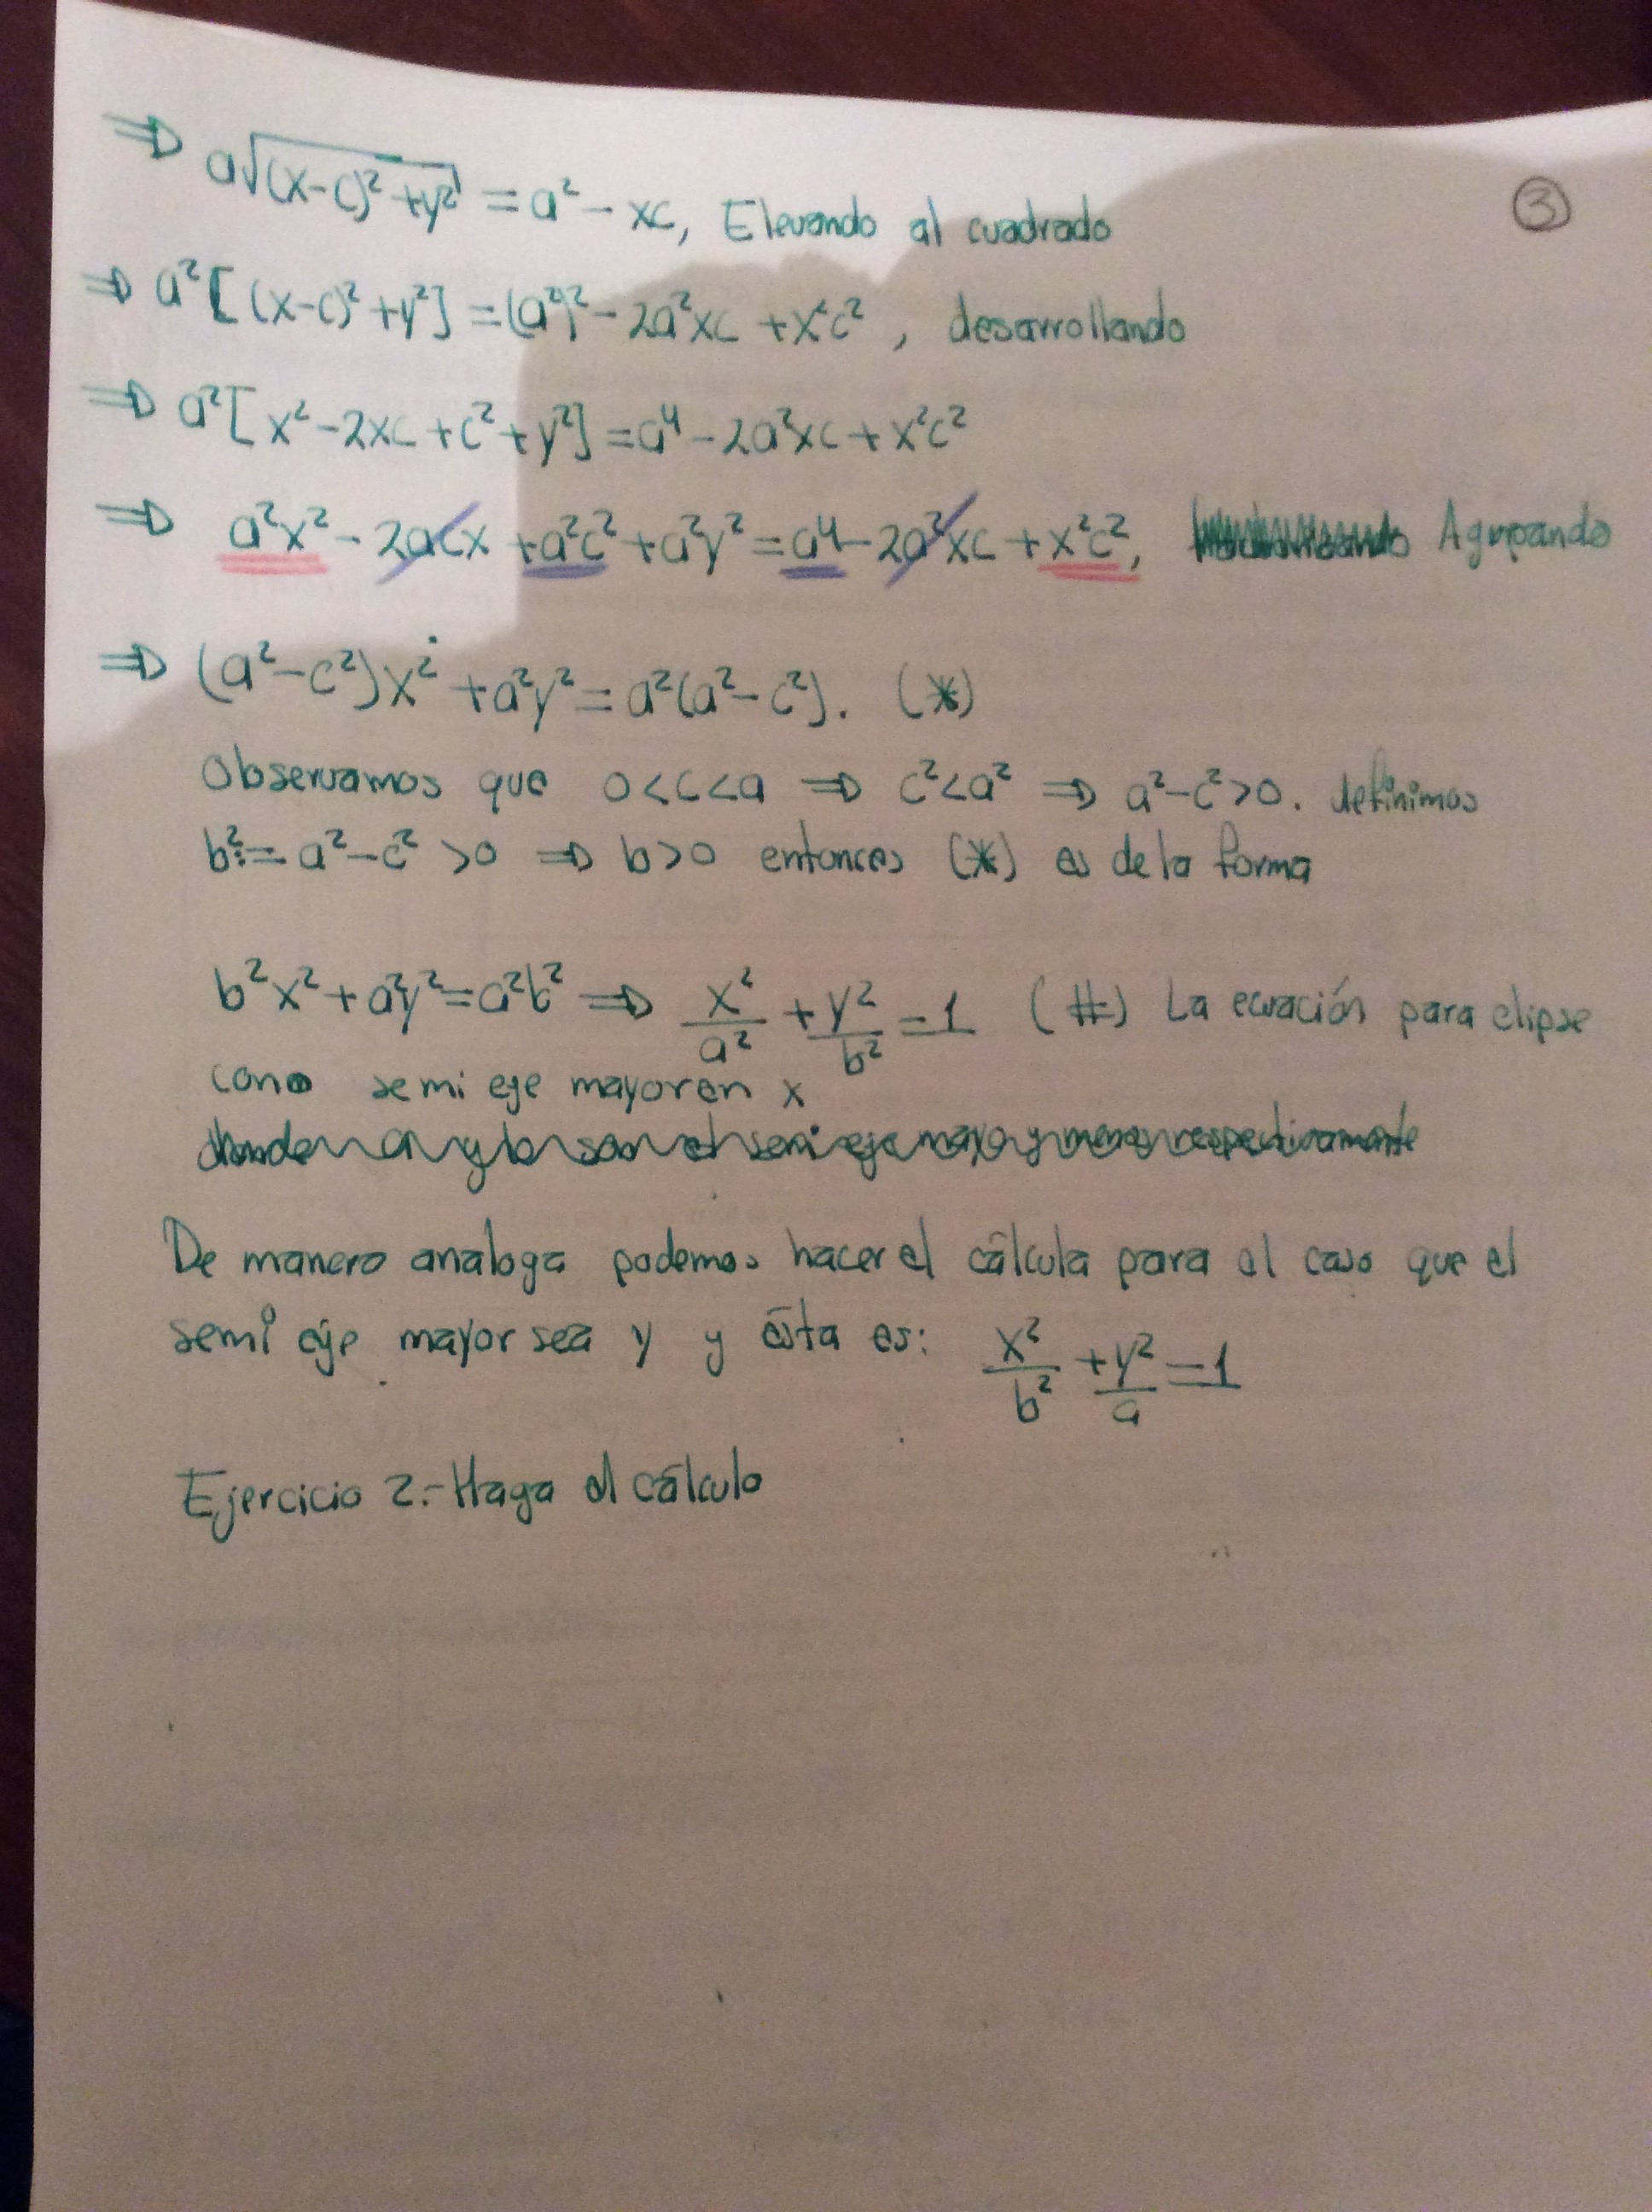 ⇒ a√((x-c)²+y²) = a² - xc, Elevando al cuadrado
③
⇒ a²[(x-c)²+y²] = (a²)² - 2a²xc + x²c², desarrollando
⇒ a²[x²-2xc+c²+y²] = a⁴-2a²xc+x²c²
⇒ a²x² - 2acx + a²c² + a²y² = a⁴ - 2a²xc + x²c², Agrupando
⇒ (a²-c²)x² + a²y² = a²(a²-c²). (*)
Observamos que 0<c<a ⇒ c²<a² ⇒ a²-c²>0. definimos
b²:= a²-c² >0 ⇒ b>0 entonces (*) es de la forma
b²x²+a²y²=a²b² ⇒ x²/a² + y²/b² = 1 (#) La ecuación para elipse
con semi eje mayor en x
donde a y b son el semi eje mayo y menor respectivamente
De manera analoga podemos hacer el cálcula para el caso que el
semi eje mayor sea y y ésta es: x²/b² + y²/a = 1
Ejercicio 2.- Haga el cálculo